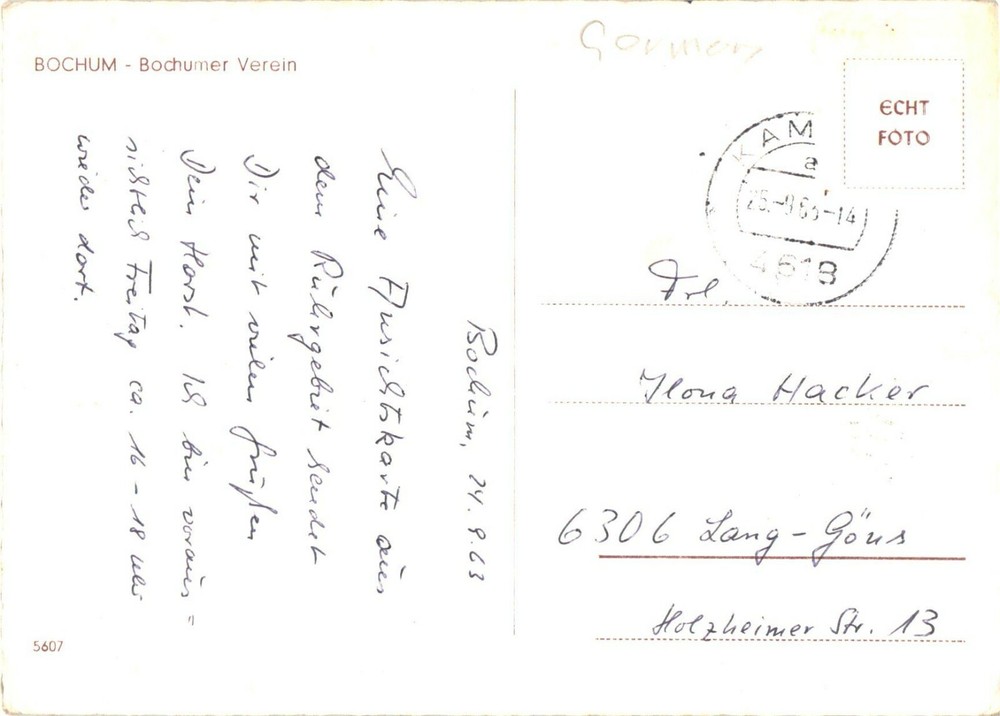 BOCHUM - Bochumer Verein
Bochum, 24.9.63
Eine Ansichtskarte aus
dem Ruhrgebiet sendet
Dir mit vielen Grüßen
Dein Horst. Ich bin voraus=
sichtlich Freitag ca. 16 - 18 Uhr
wieder dort.
5607
Germany
ECHT
FOTO
KAM
a
25.-9.63-14
4618
Frl.
Ilona Hacker
6306 Lang-Göns
Holzheimer Str. 13